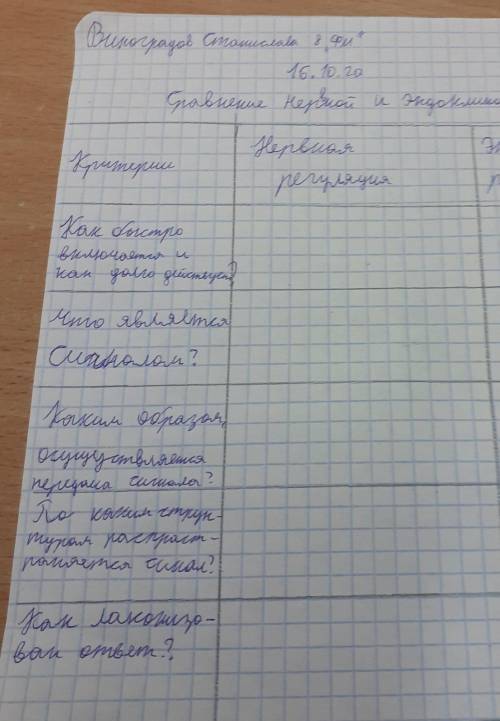 Виноградов Станислава 8 „ФИ“
16.10.20
Сравнение нервной и
Критерии
Нервная
регуляция
Как быстро
включается и
как долго действует?
Что является
сигналом?
Каким образом
осуществляется
передача сигнала?
По каким струк-
турам распрост-
раняется сигнал?
Как
ван ответ?